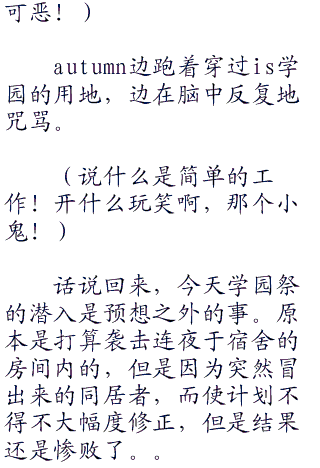 可恶！）
autumn边跑着穿过is学
园的用地，边在脑中反复地
咒骂。
（说什么是简单的工
作！开什么玩笑啊，那个小
鬼！）
话说回来，今天学园祭
的潜入是预想之外的事。原
本是打算袭击连夜于宿舍的
房间内的，但是因为突然冒
出来的同居者，而使计划不
得不大幅度修正，但是结果
还是惨败了。。